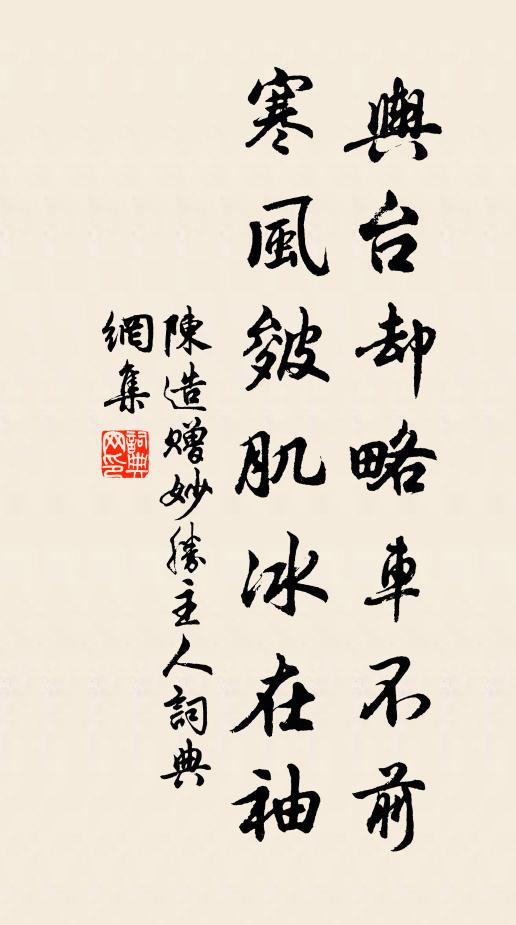 輿台却略車不前
寒風皴肌冰在袖
陳造贈妙勝主人詞典
網集
詞典網印